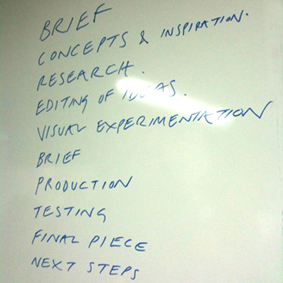 BRIEF
CONCEPTS & INSPIRATION.
RESEARCH.
EDITING OF IDEAS.
VISUAL EXPERIMENTATION
BRIEF
PRODUCTION
TESTING
FINAL PIECE
NEXT STEPS